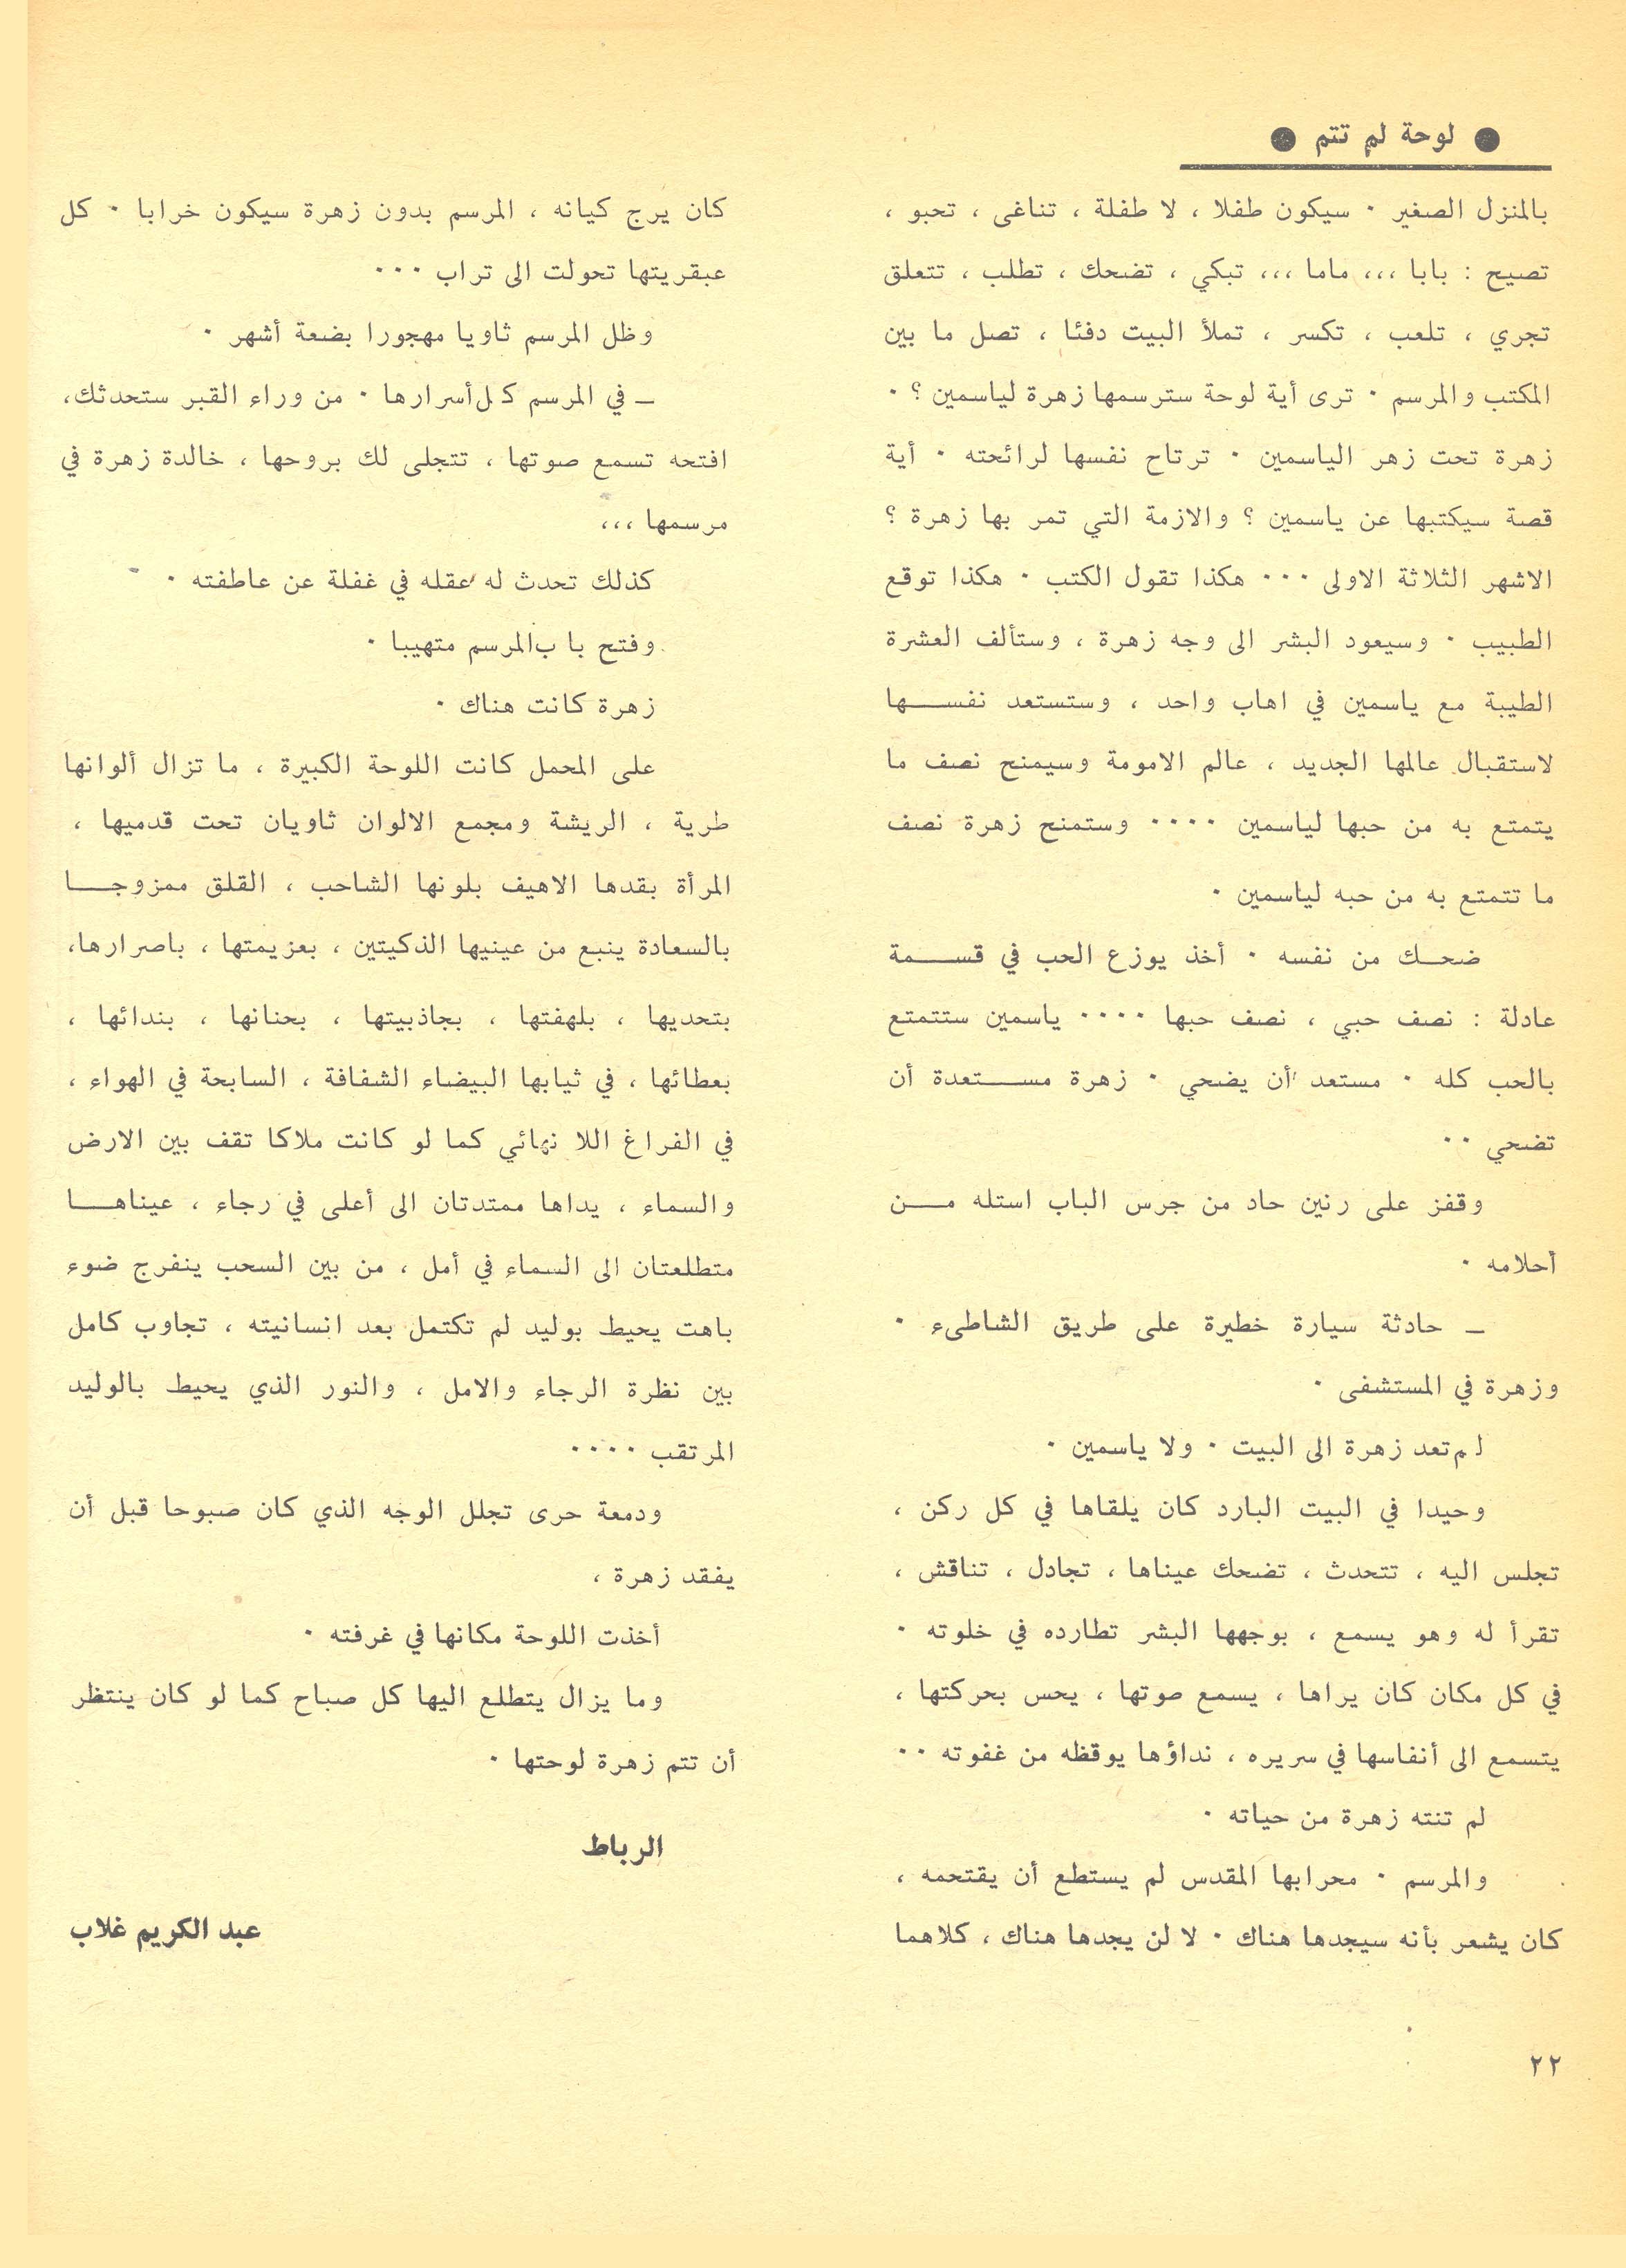 ● لوحة لم تتم ●
بالمنزل الصغير · سيكون طفلا ، لا طفلة ، تناغى ، تحبو ،
تصيح : بابا ،،، ماما ،،، تبكي ، تضحك ، تطلب ، تتعلق
تجري ، تلعب ، تكسر ، تملأ البيت دفئا ، تصل ما بين
المكتب والمرسم · ترى أية لوحة سترسمها زهرة لياسمين ؟ ·
زهرة تحت زهر الياسمين · ترتاح نفسها لرائحته · أية
قصة سيكتبها عن ياسمين ؟ والازمة التي تمر بها زهرة ؟
الاشهر الثلاثة الاولى ··· هكذا تقول الكتب · هكذا توقع
الطبيب · وسيعود البشر الى وجه زهرة ، وستألف العشرة
الطيبة مع ياسمين في اهاب واحد ، وستستعد نفسها
لاستقبال عالمها الجديد ، عالم الامومة وسيمنح نصف ما
يتمتع به من حبها لياسمين ···· وستمنح زهرة نصف
ما تتمتع به من حبه لياسمين ·
ضحك من نفسه · أخذ يوزع الحب في قسمة
عادلة : نصف حبي ، نصف حبها ···· ياسمين ستتمتع
بالحب كله · مستعد أن يضحي · زهرة مستعدة أن
تضحي ··
وقفز على رنين حاد من جرس الباب استله من
أحلامه ·
– حادثة سيارة خطيرة على طريق الشاطىء ·
وزهرة في المستشفى ·
لم تعد زهرة الى البيت · ولا ياسمين ·
وحيدا في البيت البارد كان يلقاها في كل ركن ،
تجلس اليه ، تتحدث ، تضحك عيناها ، تجادل ، تناقش ،
تقرأ له وهو يسمع ، بوجهها البشر تطارده في خلوته ·
في كل مكان كان يراها ، يسمع صوتها ، يحس بحركتها ،
يتسمع الى أنفاسها في سريره ، نداؤها يوقظه من غفوته ··
لم تنته زهرة من حياته ·
والمرسم · محرابها المقدس لم يستطع أن يقتحمه ،
كان يشعر بأنه سيجدها هناك · لا لن يجدها هناك ، كلاهما
كان يرج كيانه ، المرسم بدون زهرة سيكون خرابا · كل
عبقريتها تحولت الى تراب ···
وظل المرسم ثاويا مهجورا بضعة أشهر ·
– في المرسم كل أسرارها · من وراء القبر ستحدثك،
افتحه تسمع صوتها ، تتجلى لك بروحها ، خالدة زهرة في
مرسمها ،،،
كذلك تحدث له عقله في غفلة عن عاطفته ·
وفتح با ب المرسم متهيبا ·
زهرة كانت هناك ·
على المحمل كانت اللوحة الكبيرة ، ما تزال ألوانها
طرية ، الريشة ومجمع الالوان ثاويان تحت قدميها ،
المرأة بقدها الاهيف بلونها الشاحب ، القلق ممزوجا
بالسعادة ينبع من عينيها الذكيتين ، بعزيمتها ، باصرارها،
بتحديها ، بلهفتها ، بجاذبيتها ، بحنانها ، بندائها ،
بعطائها ، في ثيابها البيضاء الشفافة ، السابحة في الهواء ،
في الفراغ اللا نهائي كما لو كانت ملاكا تقف بين الارض
والسماء ، يداها ممتدتان الى أعلى في رجاء ، عيناها
متطلعتان الى السماء في أمل ، من بين السحب ينفرج ضوء
باهت يحيط بوليد لم تكتمل بعد انسانيته ، تجاوب كامل
بين نظرة الرجاء والامل ، والنور الذي يحيط بالوليد
المرتقب ····
ودمعة حرى تجلل الوجه الذي كان صبوحا قبل أن
يفقد زهرة ،
أخذت اللوحة مكانها في غرفته ·
وما يزال يتطلع اليها كل صباح كما لو كان ينتظر
أن تتم زهرة لوحتها ·
الرباط
عبد الكريم غلاب
٢٢